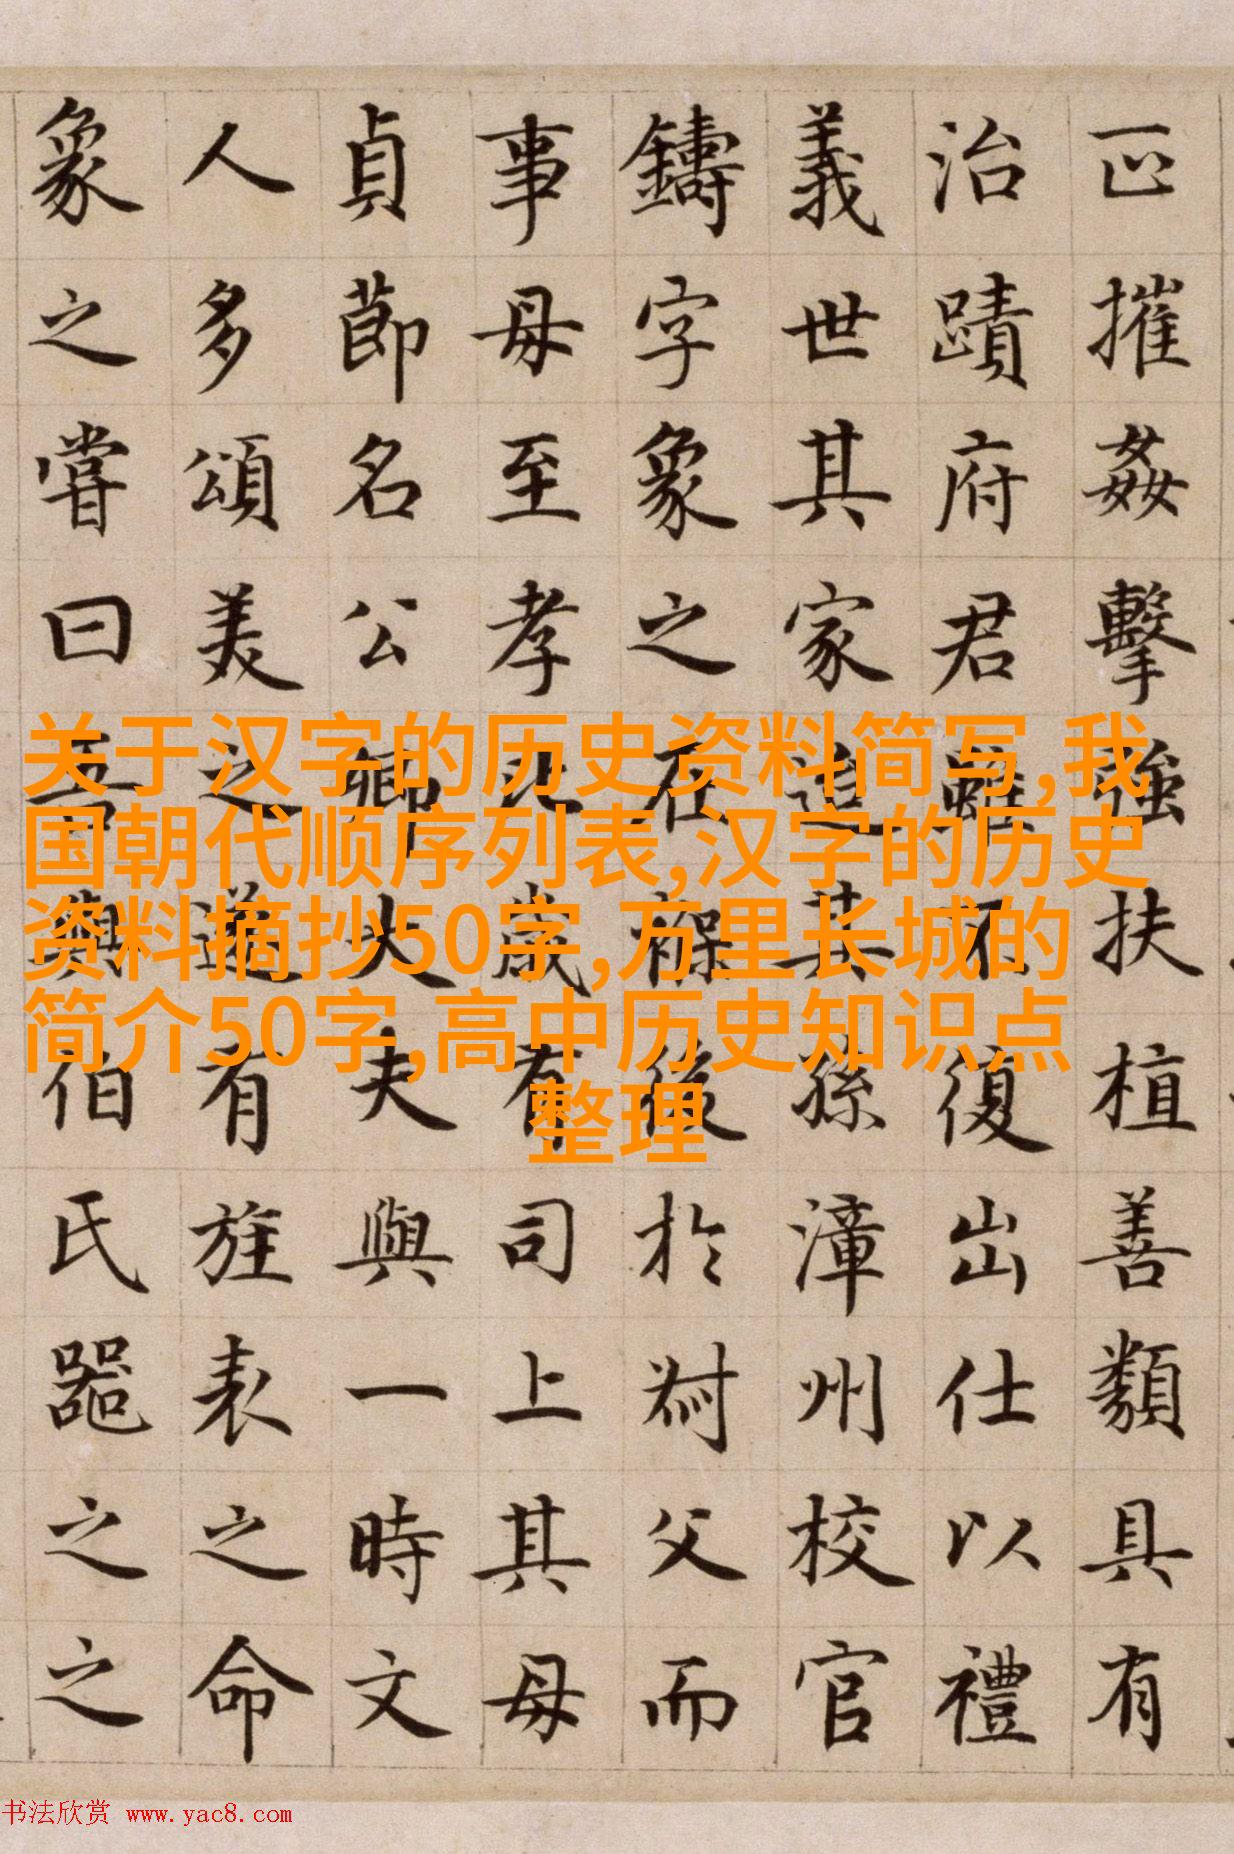 关于汉字的历史资料简写,我
国朝代顺序列表,汉字的历史
资料摘抄50字,万里长城的
简介50字,高中历史知识点
整理
正摧姦擊強扶植善類具有
治蹟府君雖不復出仕以禮
義世其家其孫漳州校官
鑄字象之在褓後於父而
事母至孝比歲有司上其母
貞節名公卿大夫與一時文
人多頌美之遂有旌表之命
象之嘗曰吾與伯氏器之之
书法欣赏 www.yac8.com